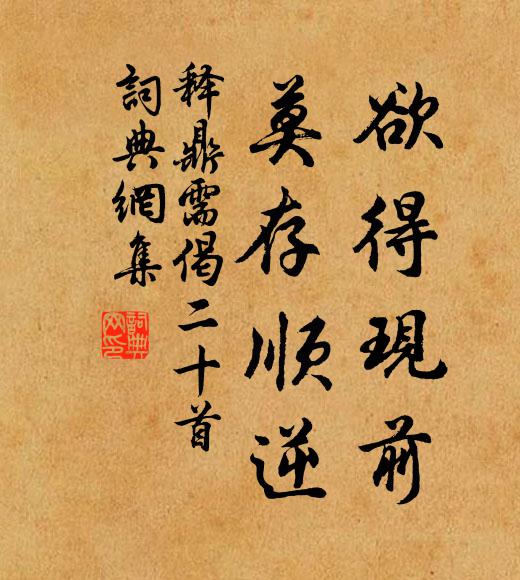 欲得現前
莫存順逆
释鼎需偈二十首
詞典網集
詞典網印